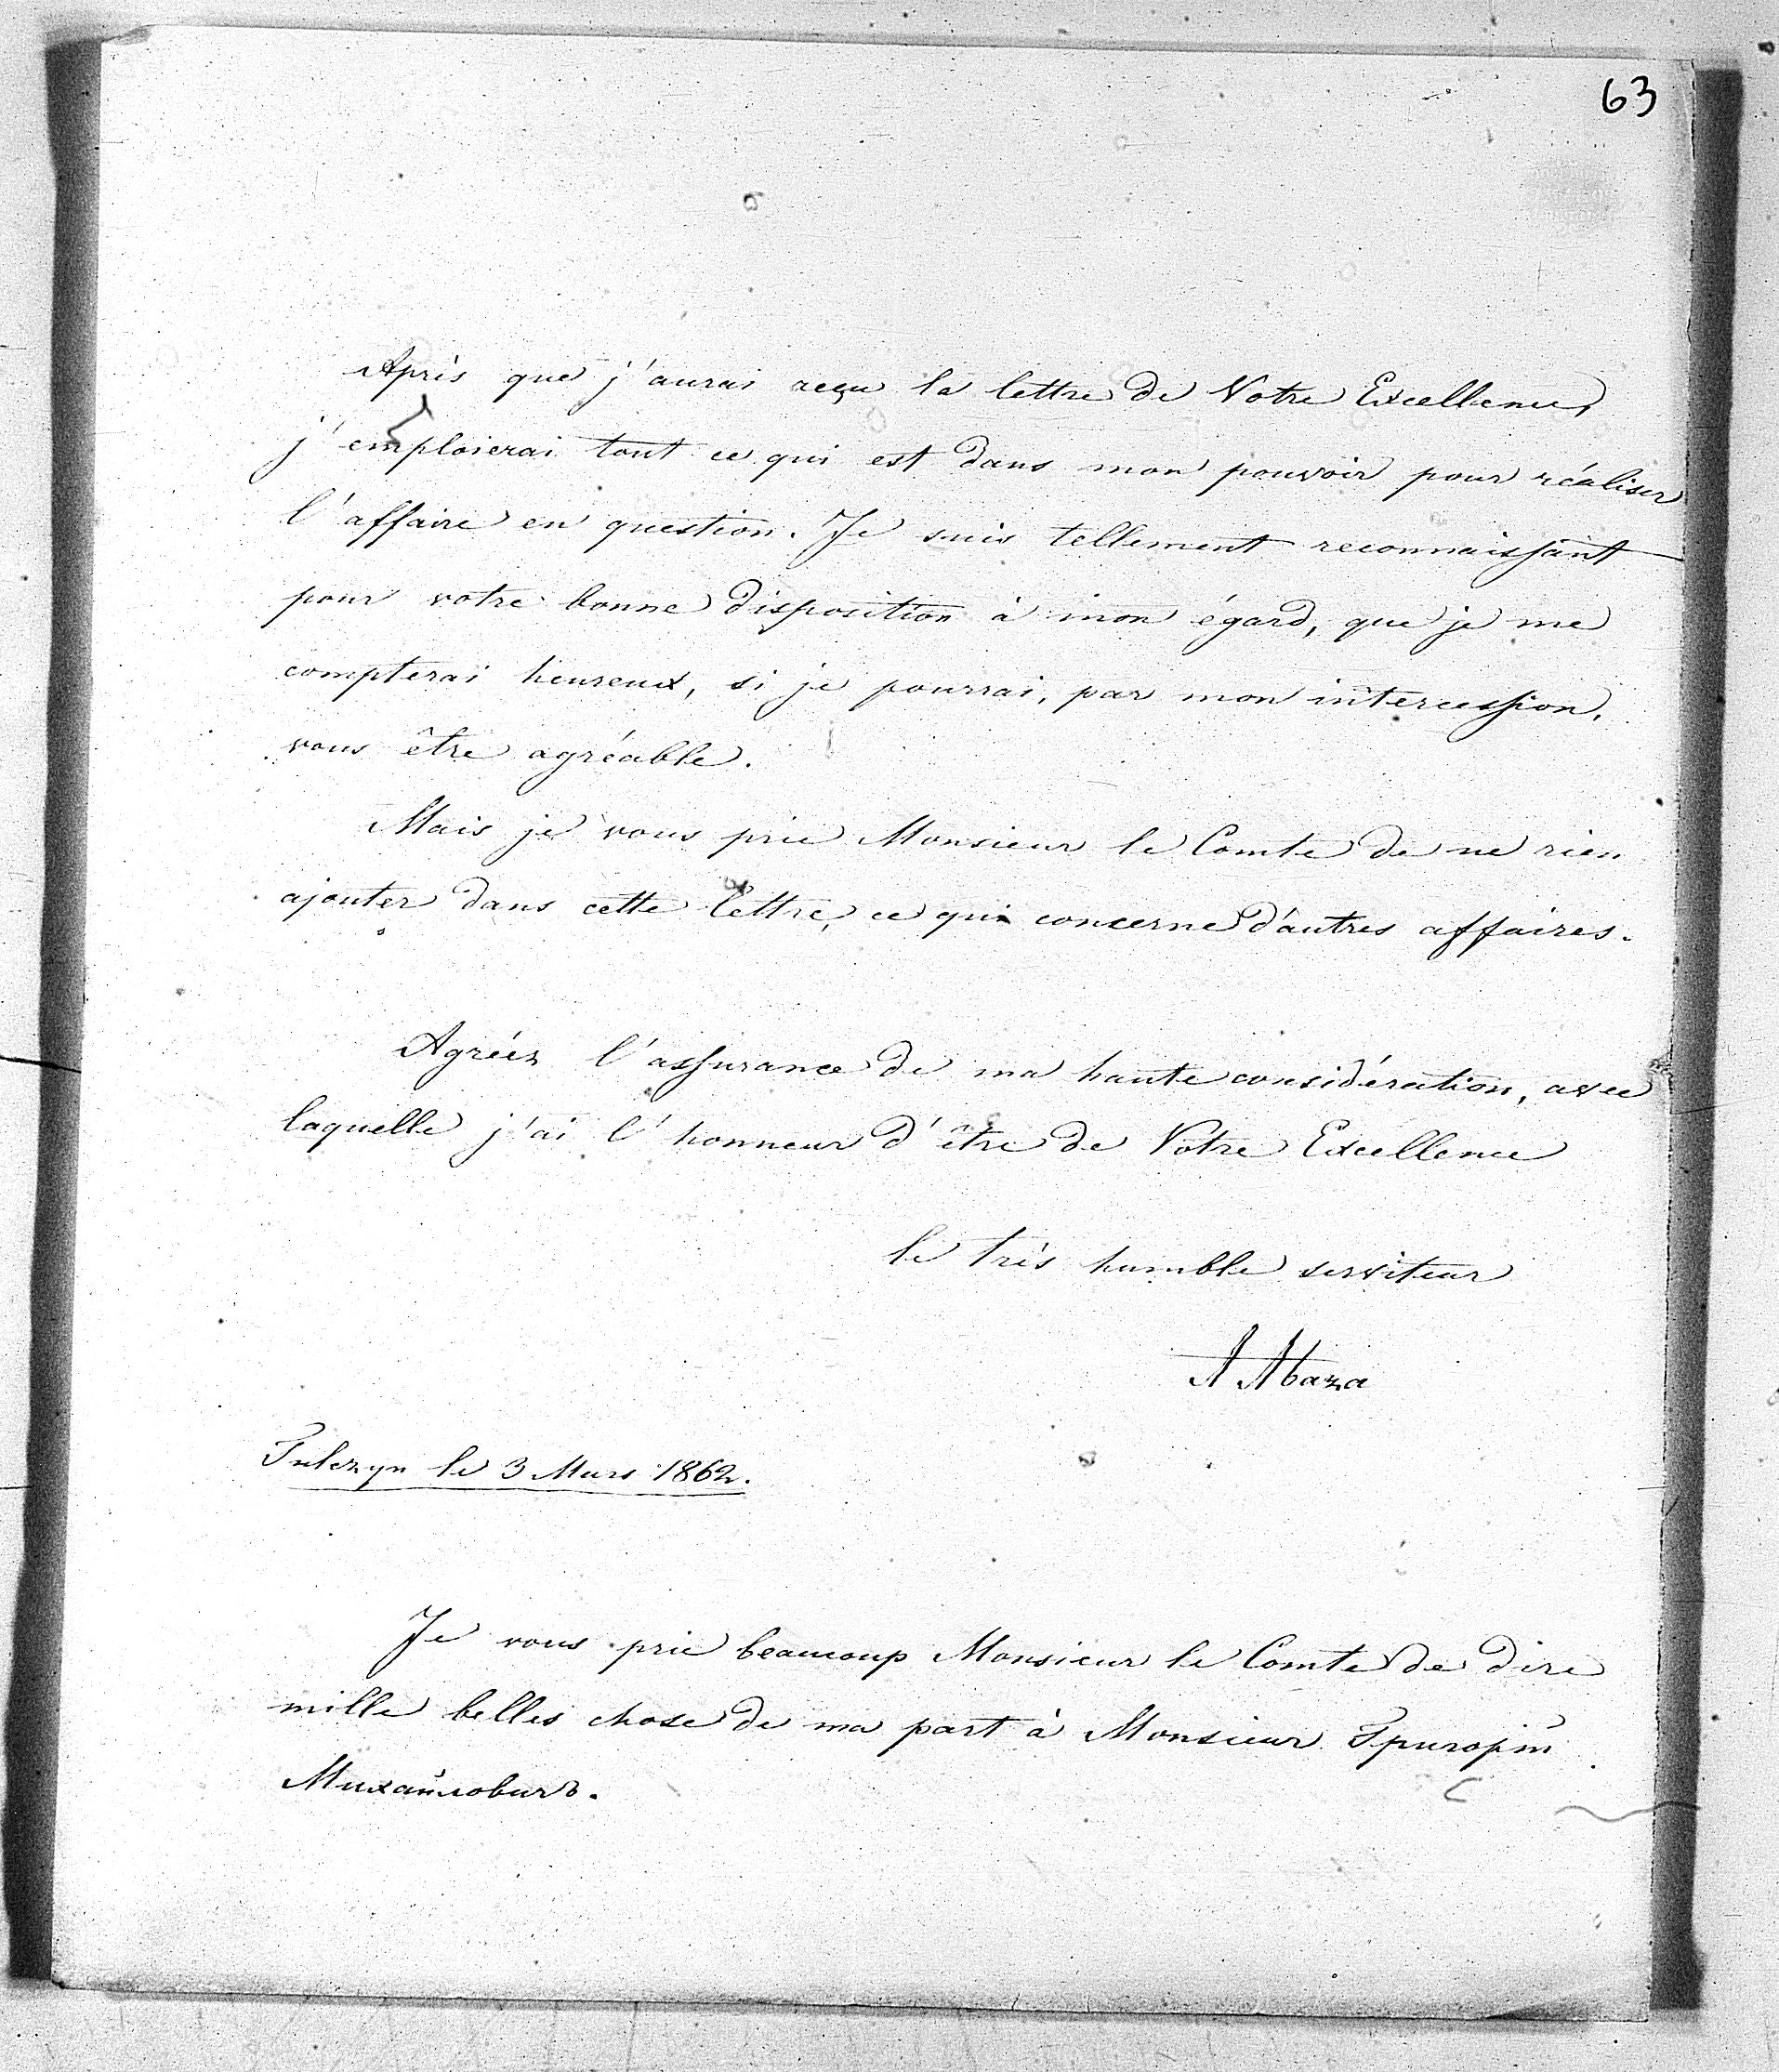 63
Après que j'aurai reçu la lettre de Votre Excellence,
j'emploierai tout ce qui est dans mon pouvoir pour réaliser
l'affaire en question. Je suis tellement reconnaissant
pour votre bonne disposition à mon égard, que je me
compterai heureux, si je pourrai, par mon intercession,
vous être agréable.
Mais je vous prie Monsieur le Comte de ne rien
ajouter dans cette lettre, ce qui concerne d'autres affaires.
Agréez l'assurance de ma haute considération, avec
laquelle j'ai l'honneur d'être de Votre Excellence
le très humble serviteur
A Abaza
Tulczyn le 3 Mars 1862.
Je vous prie beaucoup Monsieur le Comte de dire
mille belles chose de ma part à Monsieur Григорій
Михайловичъ.